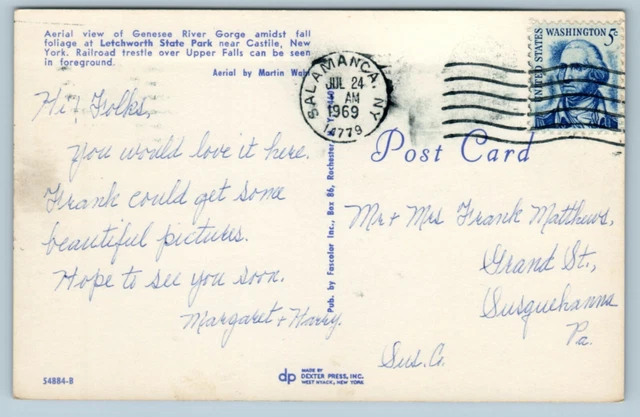 Aerial view of Genesee River Gorge amidst fall
foliage at Letchworth State Park near Castile, New
York. Railroad trestle over Upper Falls can be seen
in foreground.
Aerial by Martin
Hi! Folks,
You would love it here.
Frank could get some
beautiful pictures.
Hope to see you soon.
Margaret + Harry.
54884-B
Pub. by Fascolor Inc., Box 86, Rochester,
dp
MADE BY
DEXTER PRESS, INC.
WEST NYACK, NEW YORK
SALAMANCA, NY
JUL 24
AM
1969
14779
UNITED STATES
WASHINGTON 5¢
Post Card
Mr + Mrs Frank Matthews,
Grand St.,
Susquehanna
Pa.
Sus. Co.